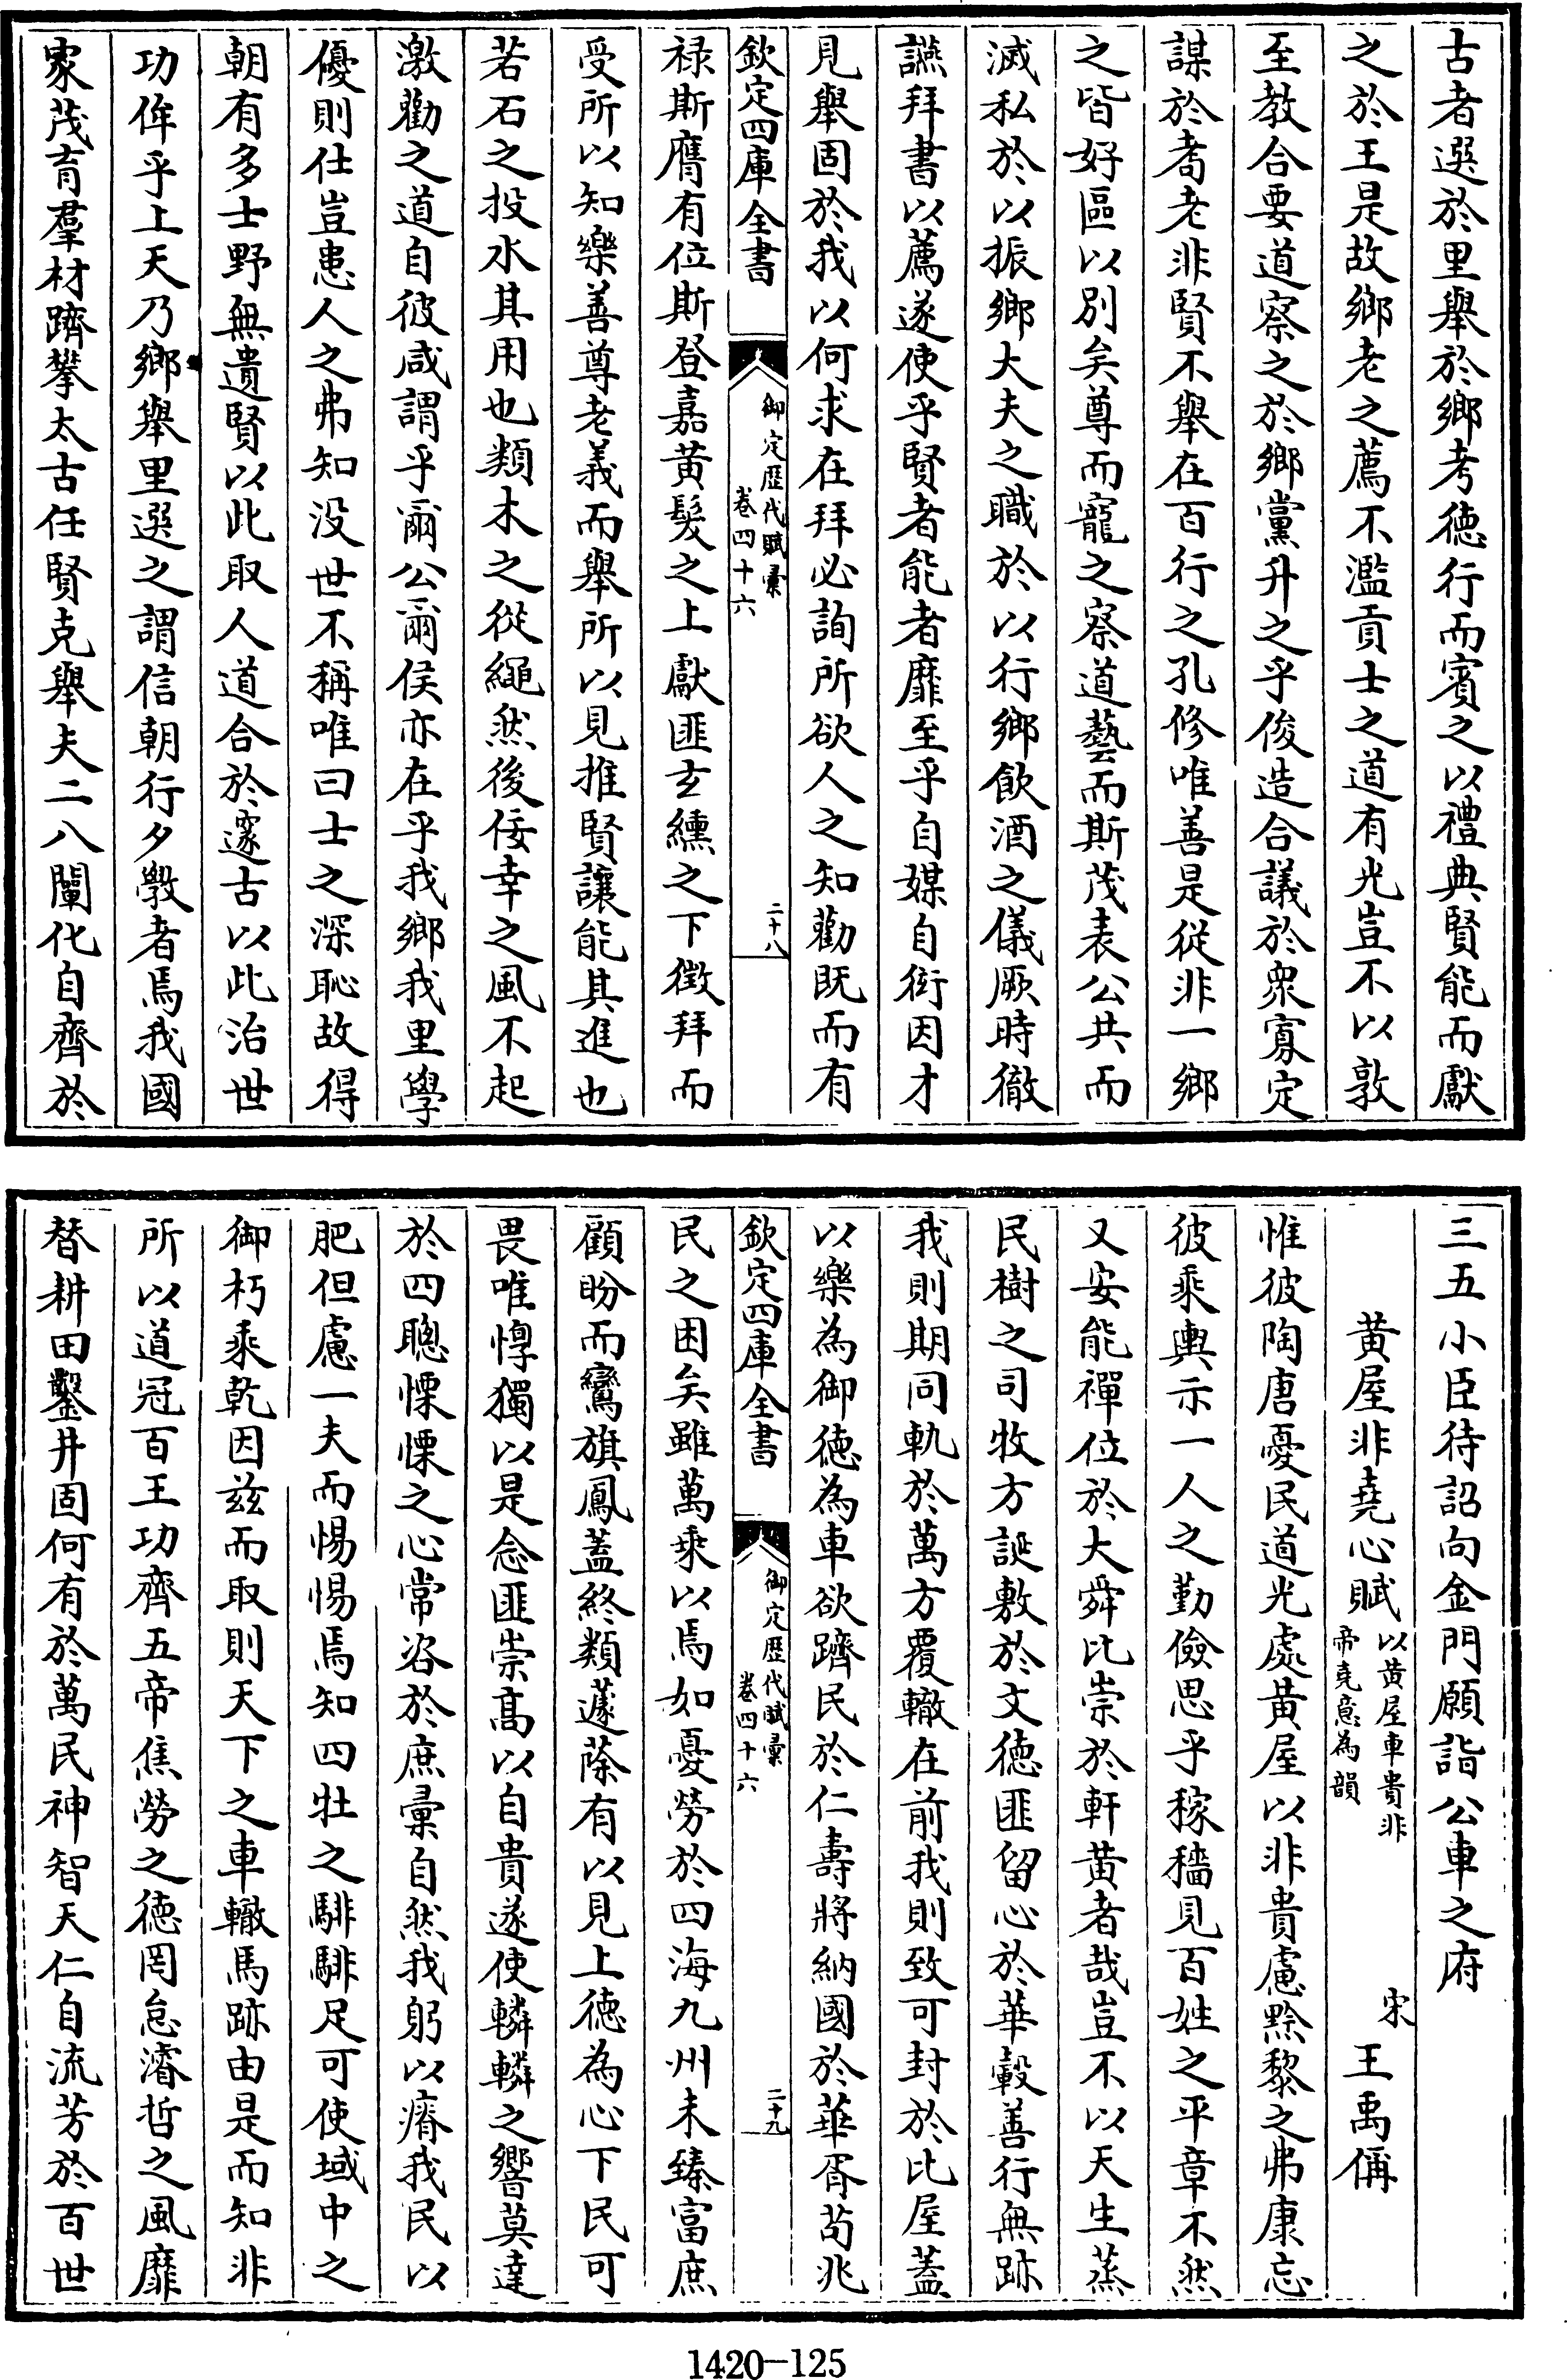 古者選於里舉於鄉考徳行而賓之以禮典賢能而獻
之於王是故鄉老之薦不濫貢士之道有光豈不以敦
至教合要道察之於鄉黨升之乎俊造合議於衆寡定
謀於耈老非賢不舉在百行之孔修唯善是從非一鄉
之皆好區以別矣尊而寵之察道藝而斯茂表公共而
滅私於以振鄉大夫之職於以行鄉飲酒之儀厥時徹
讌拜書以薦遂使乎賢者能者靡至乎自媒自衒因才
見舉固於我以何求在拜必詢所欲人之知勸既而有
欽定四庫全書
御定歷代賦彙
卷四十六
二十八
禄斯膺有位斯登嘉黄髮之上獻匪玄纁之下徴拜而
受所以知樂善尊老義而舉所以見推賢讓能其進也
若石之投水其用也類木之從繩然後佞幸之風不起
激勸之道自彼咸謂乎爾公爾侯亦在乎我鄉我里學
優則仕豈患人之弗知没世不稱唯曰士之深恥故得
朝有多士野無遺賢以此取人道合於邃古以此治世
功侔乎上天乃鄉舉里選之謂信朝行夕斆者焉我國
家茂育羣材躋攀太古任賢克舉夫二八闡化自齊於
三五小臣待詔向金門願詣公車之府
黄屋非堯心賦
以黄屋車貴非
帝堯意為韻
宋
王禹偁
惟彼陶唐憂民道光處黄屋以非貴慮黔黎之弗康忘
彼乘輿示一人之勤儉思乎稼穡見百姓之平章不然
又安能禪位於大舜比崇於軒黄者哉豈不以天生蒸
民樹之司牧方誕敷於文徳匪留心於華轂善行無跡
我則期同軌於萬方覆轍在前我則致可封於比屋蓋
以樂為御徳為車欲躋民於仁壽將納國於華胥苟兆
欽定四庫全書
御定歷代賦彙
卷四十六
二十九
民之困矣雖萬乘以焉如憂勞於四海九州未臻富庶
顧盼而鸞旗鳳蓋終類蘧蒢有以見上徳為心下民可
畏唯惸獨以是念匪崇高以自貴遂使轔轔之響莫達
於四聰慄慄之心常咨於庶彙自然我躬以瘠我民以
肥但慮一夫而惕惕焉知四牡之騑騑足可使域中之
御朽乘乾因兹而取則天下之車轍馬跡由是而知非
所以道冠百王功齊五帝焦勞之徳罔怠濬哲之風靡
替耕田鑿井固何有於萬民神智天仁自流芳於百世
1420—125